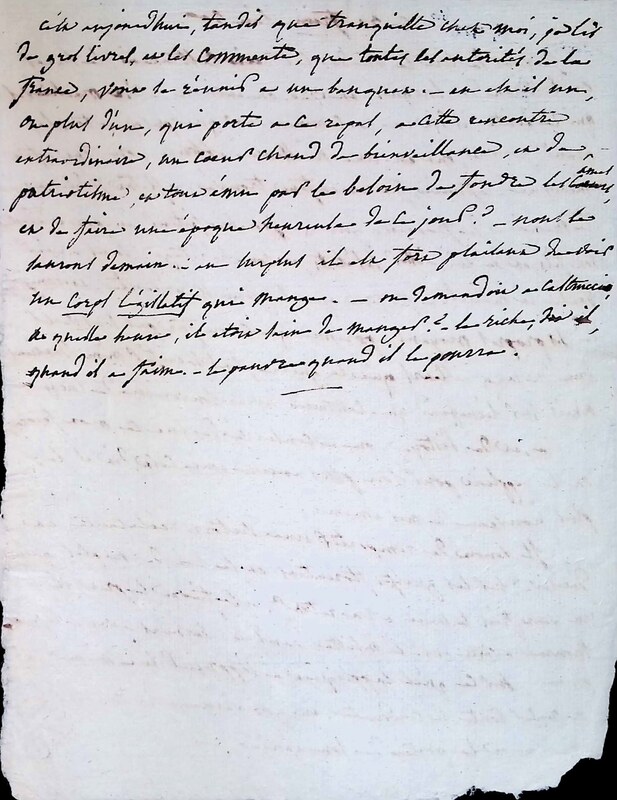 c'est aujourdhui, tandis que tranquille chez moi, je lis
de gros livres, et les Commente, que toutes les autorités de la
france, vont se réunir a un banquet. – en est il un,
ou plus d'un, qui porte a ce repas, a cette rencontre
extraordinaire, un coeur chaud de bienveillance, et de
patriotisme, et tout ému par le besoin de fondre les ames,
et de faire une époque heureuse de ce jour? – nous le
saurons demain. – au surplus il est fort plaisant de voir
un Corps Législatif qui mange. – on demandoit a
a quelle heure, il étoit sain de manger? le riche, dit il,
quand il a faim. – le pauvre quand il le pourra.